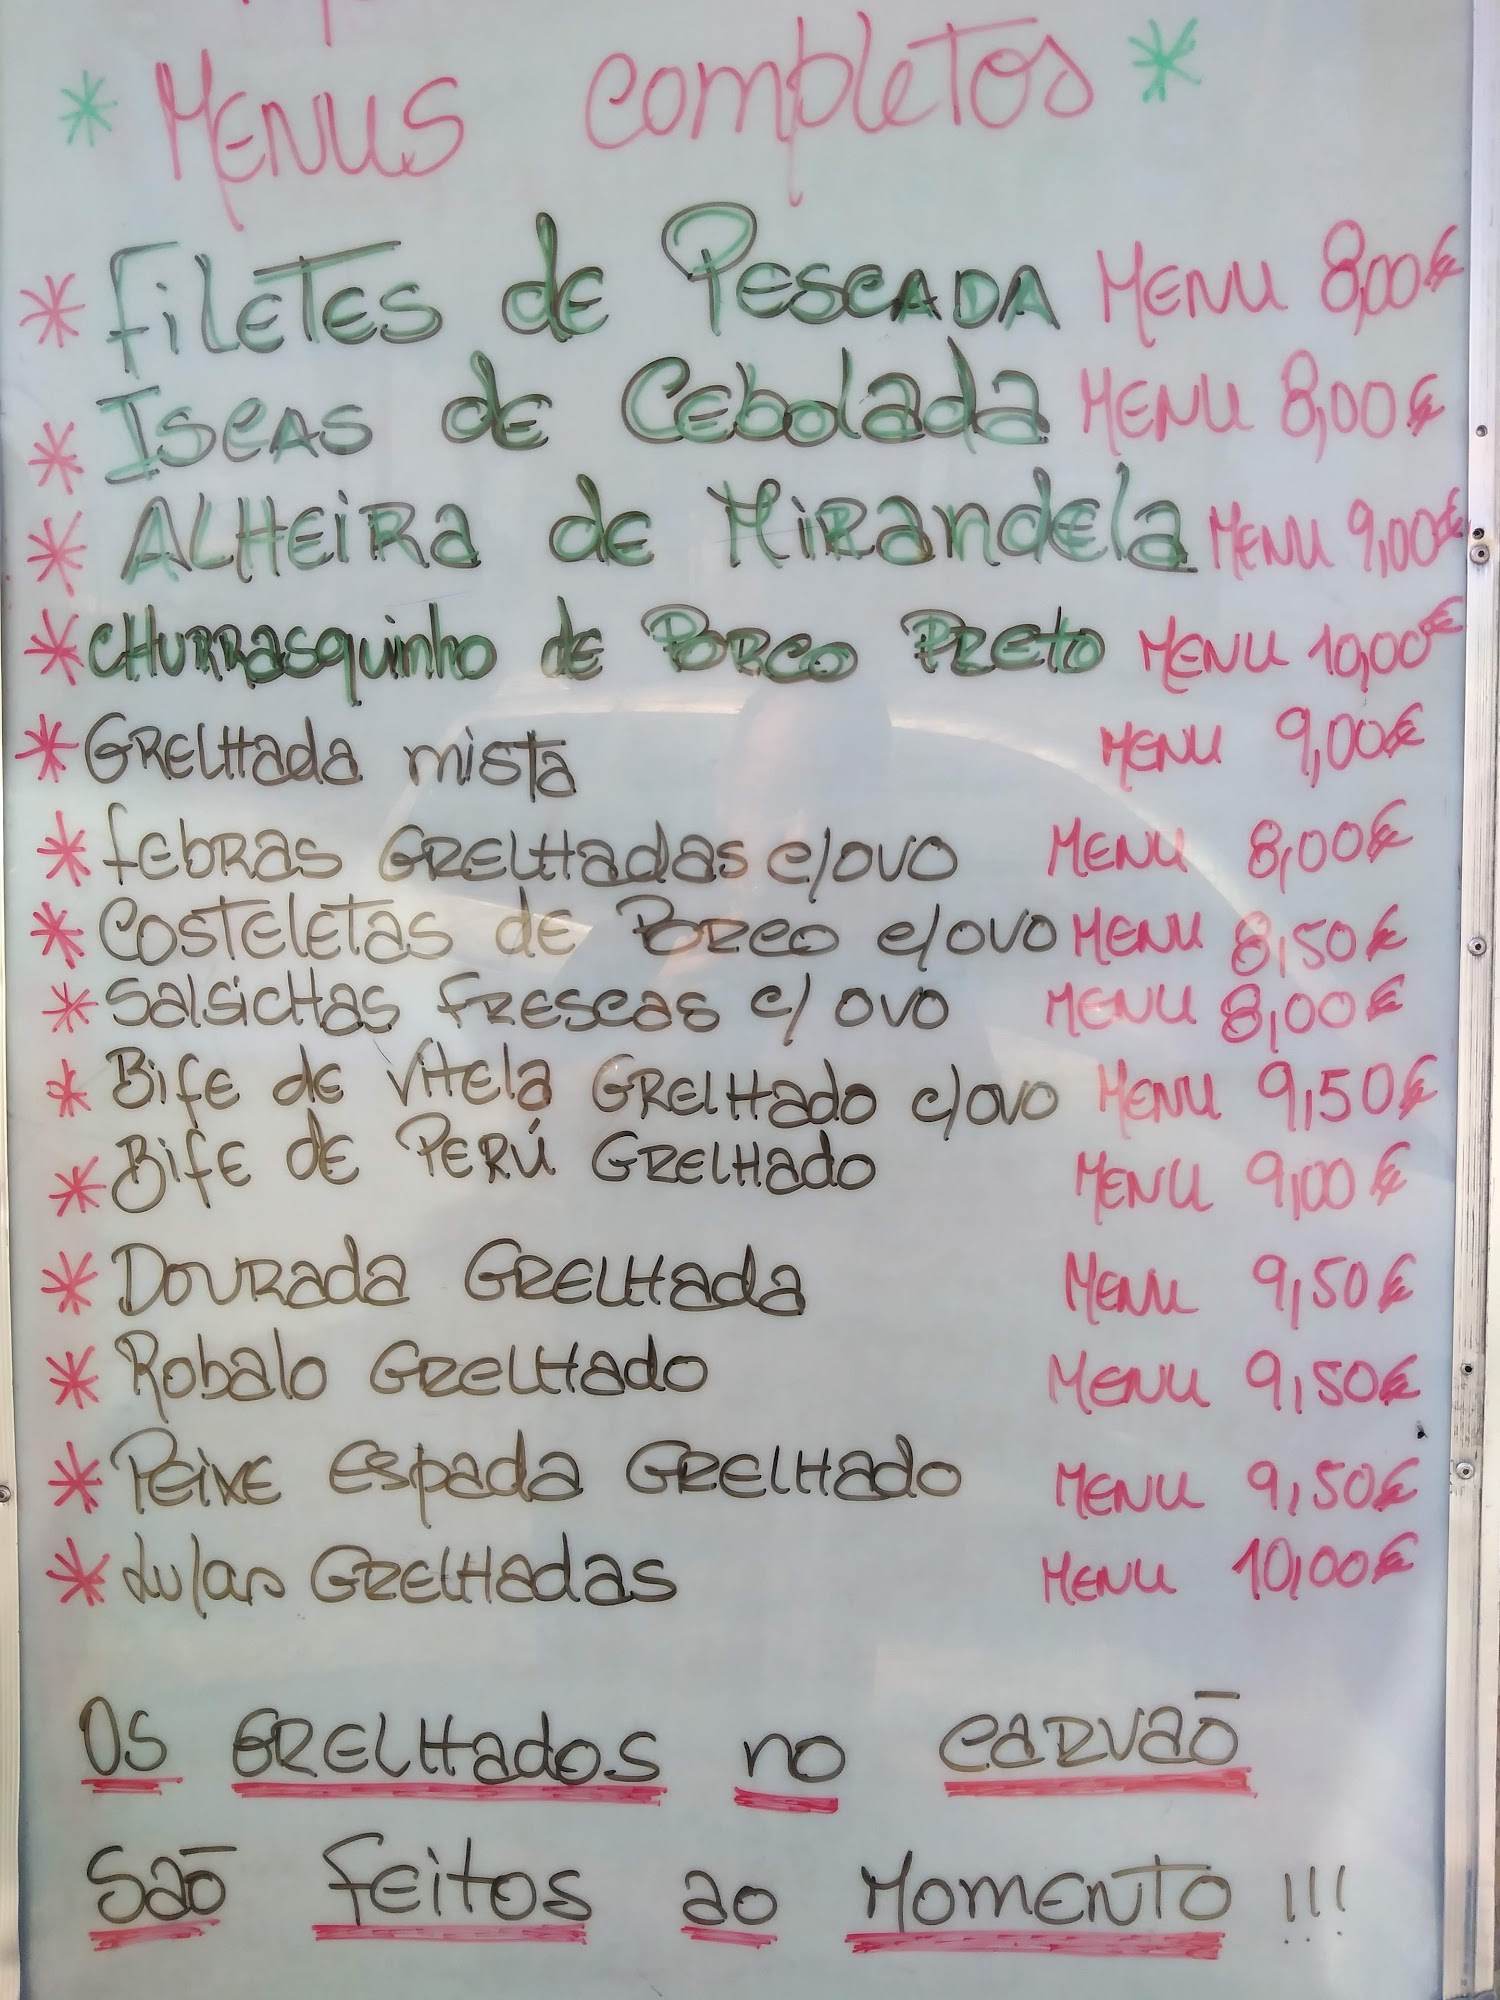 * Menus completos *
* Filetes de Pescada Menu 8,00€
* Iscas de Cebolada Menu 8,00€
* Alheira de Mirandela Menu 9,00€
* Churrasquinho de Porco Preto Menu 10,00€
* Grelhada mista Menu 9,00€
* Febras Grelhadas c/ovo Menu 8,00€
* Costeletas de Porco c/ovo Menu 8,50€
* Salsichas Frescas c/ ovo Menu 8,00€
* Bife de Vitela Grelhado c/ovo Menu 9,50€
* Bife de Perú Grelhado Menu 9,00€
* Dourada Grelhada Menu 9,50€
* Robalo Grelhado Menu 9,50€
* Peixe Espada Grelhado Menu 9,50€
* Lulas Grelhadas Menu 10,00€
Os Grelhados no carvaõ
Saõ Feitos ao Momento !!!